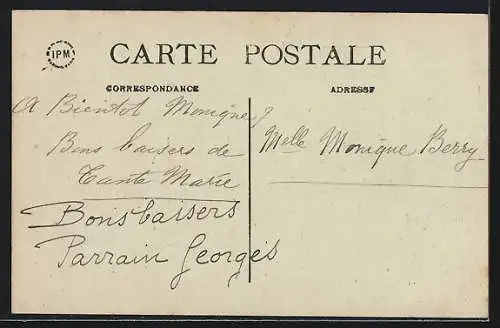 IPM
CARTE POSTALE
CORRESPONDANCE
ADRESSE
A Bientot Monique?
Bons baisers de
Tante Marie
Bons baisers
Parrain Georges
Melle Monique Berry